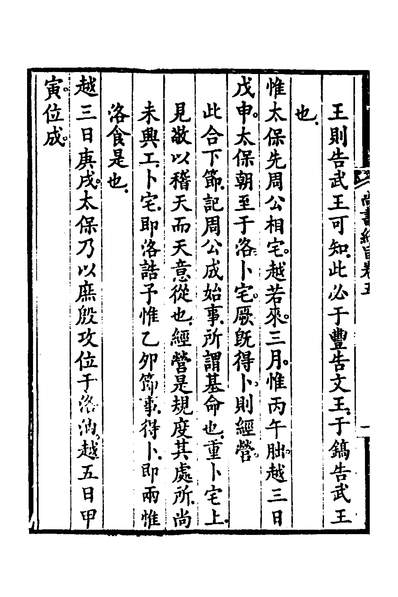 王則告武王可知此必于豐告文王于鎬告武王
也
惟太保先周公相宅越若來三月惟丙午朏越三日
戊申太保朝至于洛卜宅厥旣得卜則經營
此合下節記周公成始事所謂基命也重卜宅上
見敬以稽天而天意從也經營是規度其處所尚
未興工卜宅即洛誥予惟乙夘節事得卜即兩惟
洛食是也
越三日庚戌太保乃以庶殷攻位于洛汭越五日甲
寅位成